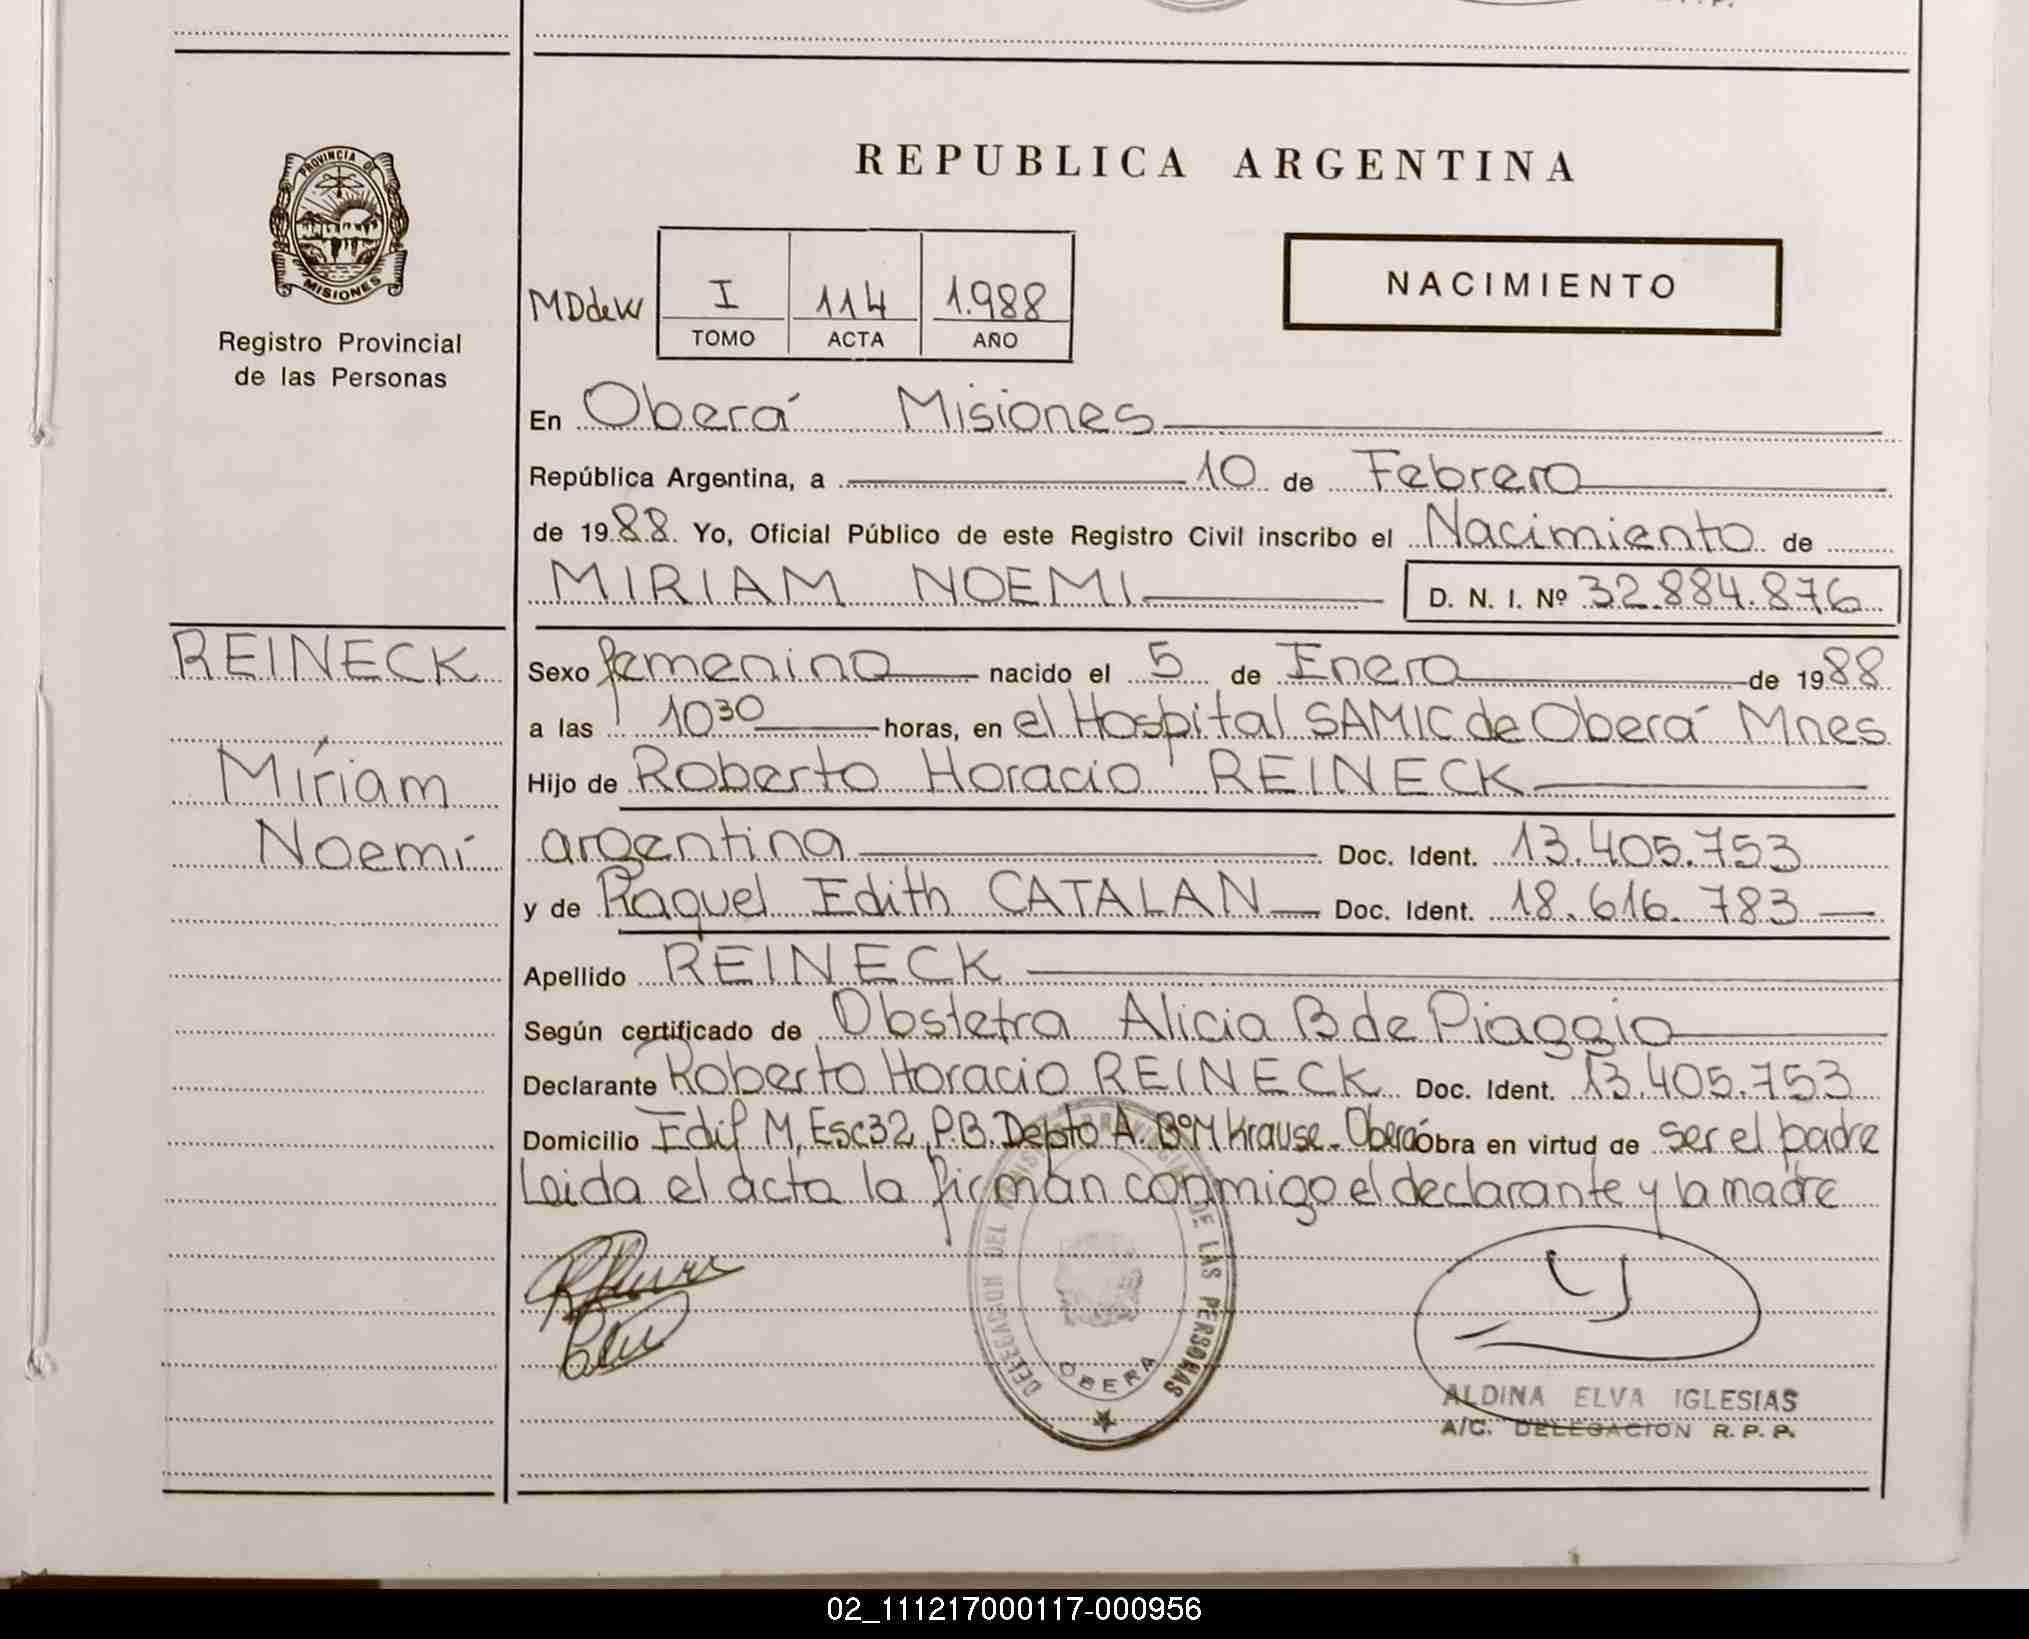 PROVINCIA DE
MISIONES
Registro Provincial
de las Personas
REINECK
Míriam
Noemí
REPUBLICA ARGENTINA
NACIMIENTO
MDdeW
I 114 1.988
TOMO ACTA AÑO
En Oberá Misiones
República Argentina, a 10 de Febrero
de 1988. Yo, Oficial Público de este Registro Civil inscribo el Nacimiento de
MIRIAM NOEMI D. N. I. Nº 32.884.876
Sexo femenino nacido el 5 de Enero de 1988
a las 10 30 horas, en el Hospital SAMIC de Oberá Mnes
Hijo de Roberto Horacio REINECK
argentina Doc. Ident. 13.405.753
y de Raquel Edith CATALAN Doc. Ident. 18.616.783
Apellido REINECK
Según certificado de Obstetra Alicia B de Piaggio
Declarante Roberto Horacio REINECK Doc. Ident. 13.405.753
Domicilio Edif M, Esc32, P.B. Depto A. Bº M Krause - Oberá Obra en virtud de ser el padre
Leida el acta la firman conmigo el declarante y la madre
DELEGACION DEL REGISTRO PROVINCIAL DE LAS PERSONAS
OBERA
ALDINA ELVA IGLESIAS
A/C. DELEGACION R. P. P.
02_111217000117-000956